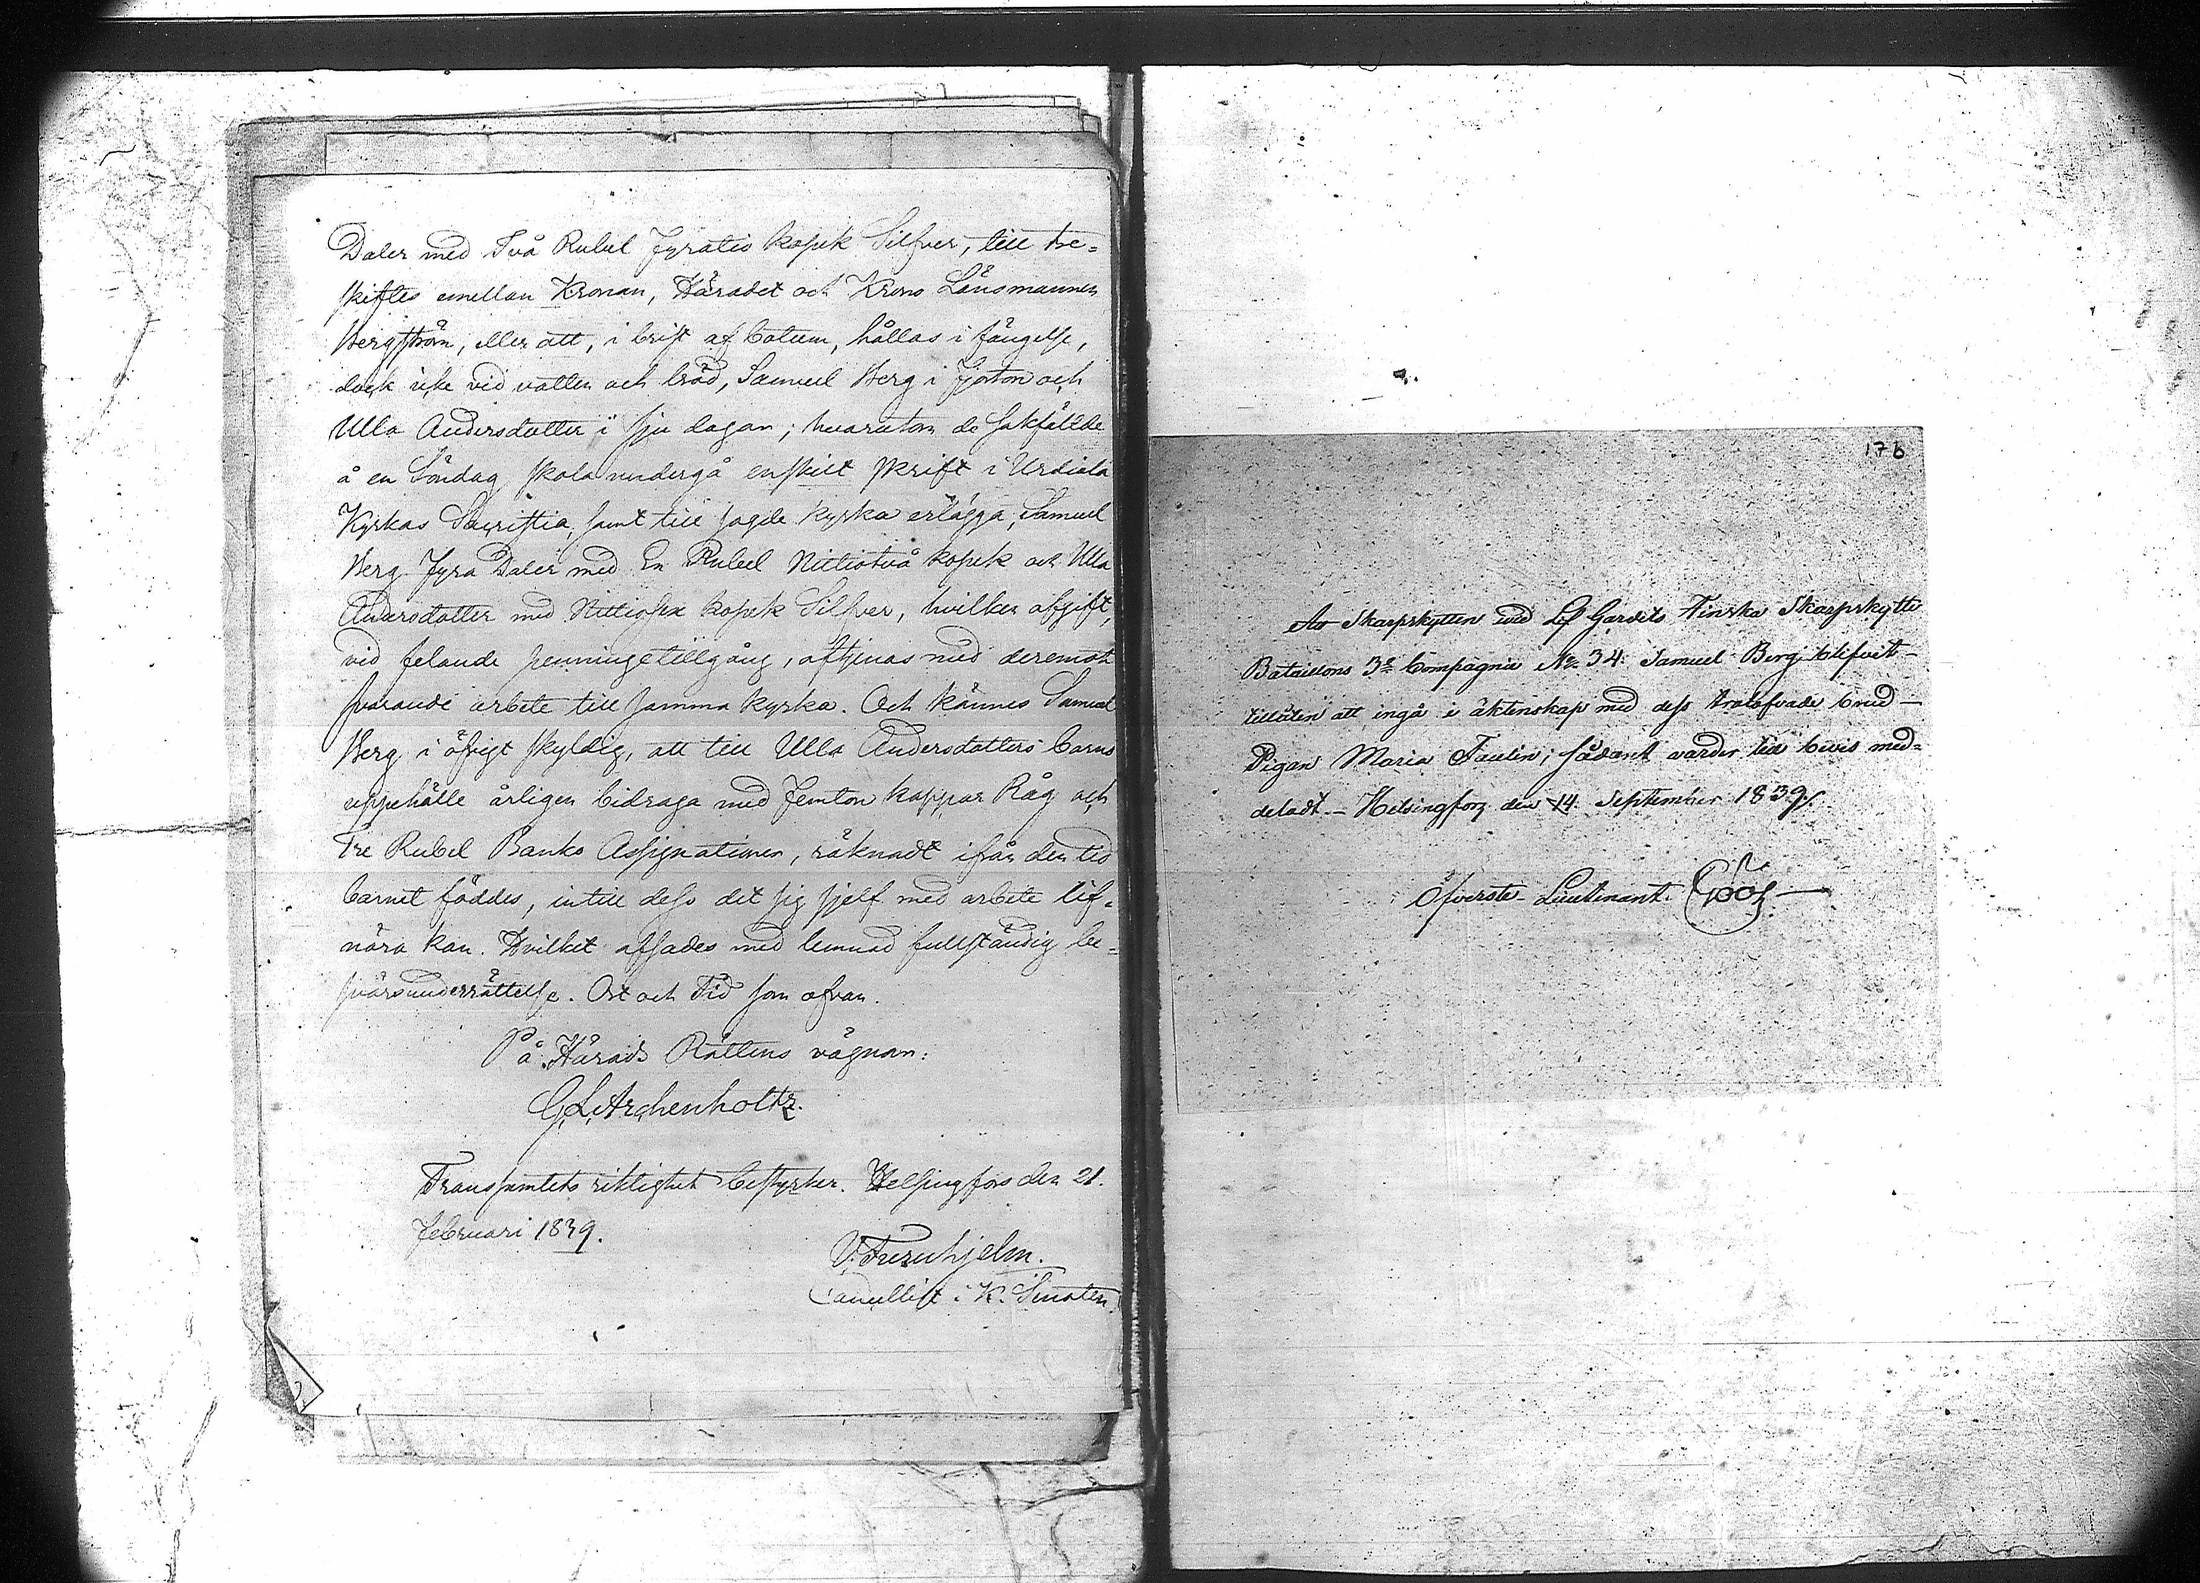 Daler med Två Rubel Fyratio kopek Silfver, till tre-
skiftes emellan Kronan, Häradet och Krono Länsmannen
Bergström, eller att, i brist af botum, hållas i fängelse,
dock icke vid vatten och bröd, Samuel Berg i fjorton och
Ulla Andersdotter i sju dagar; hvarutom de sakfällde
å en Söndag skola undergå enskilt skrift i Urdiala
Kyrkas Sacristia, samt till sagde kyrka erlägga, Samuel
Berg Fyra Daler med En Rubel Nittiotvå kopek och Ulla
Andersdotter med Nittiosex kopek Silfver, hvilken afgift,
vid felande penningetillgång, aftjenas med deremot
svarande arbete till samma kyrka. Och kännes Samuel
Berg i öfrigt skyldig, att till Ulla Andersdotters barns
uppehälle årligen bidraga med Femton kappar Råg och
Tre Rubel Banko Assignationer, räknadt ifrån den tid
barnet föddes, intill dess det sig sjelf med arbete lif-
nära kan. Hvilket afsades med lemnad fullständig be-
svärsunderrättelse. Ort och Tid som ofvan.
På Härads Rättens vägnar:
G. L. Archenholtz.
Transsumtets riktighet bestyrker. Helsingfors den 21.
Februari 1839.
V. Furuhjelm.
Cancellist i K. Senaten.
176
At Skarpskytten vid Lif Gardets Finska Skarpskytte
Bataillons 3e Compagnie No 34. Samuel Berg blifvit
tillåten att ingå i äktenskap med dess trolofvade brud
Pigan Maria Faulin; sådant varder till bevis med-
deladt. Helsingfors den 14. September 1839.
Öfverste-Lieutenant.